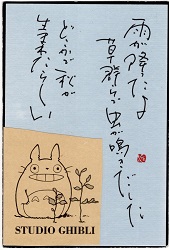 雨が降たよ
草群らで虫が鳴きだした
どふふで秋が
生まれたらしい
STUDIO GHIBLI